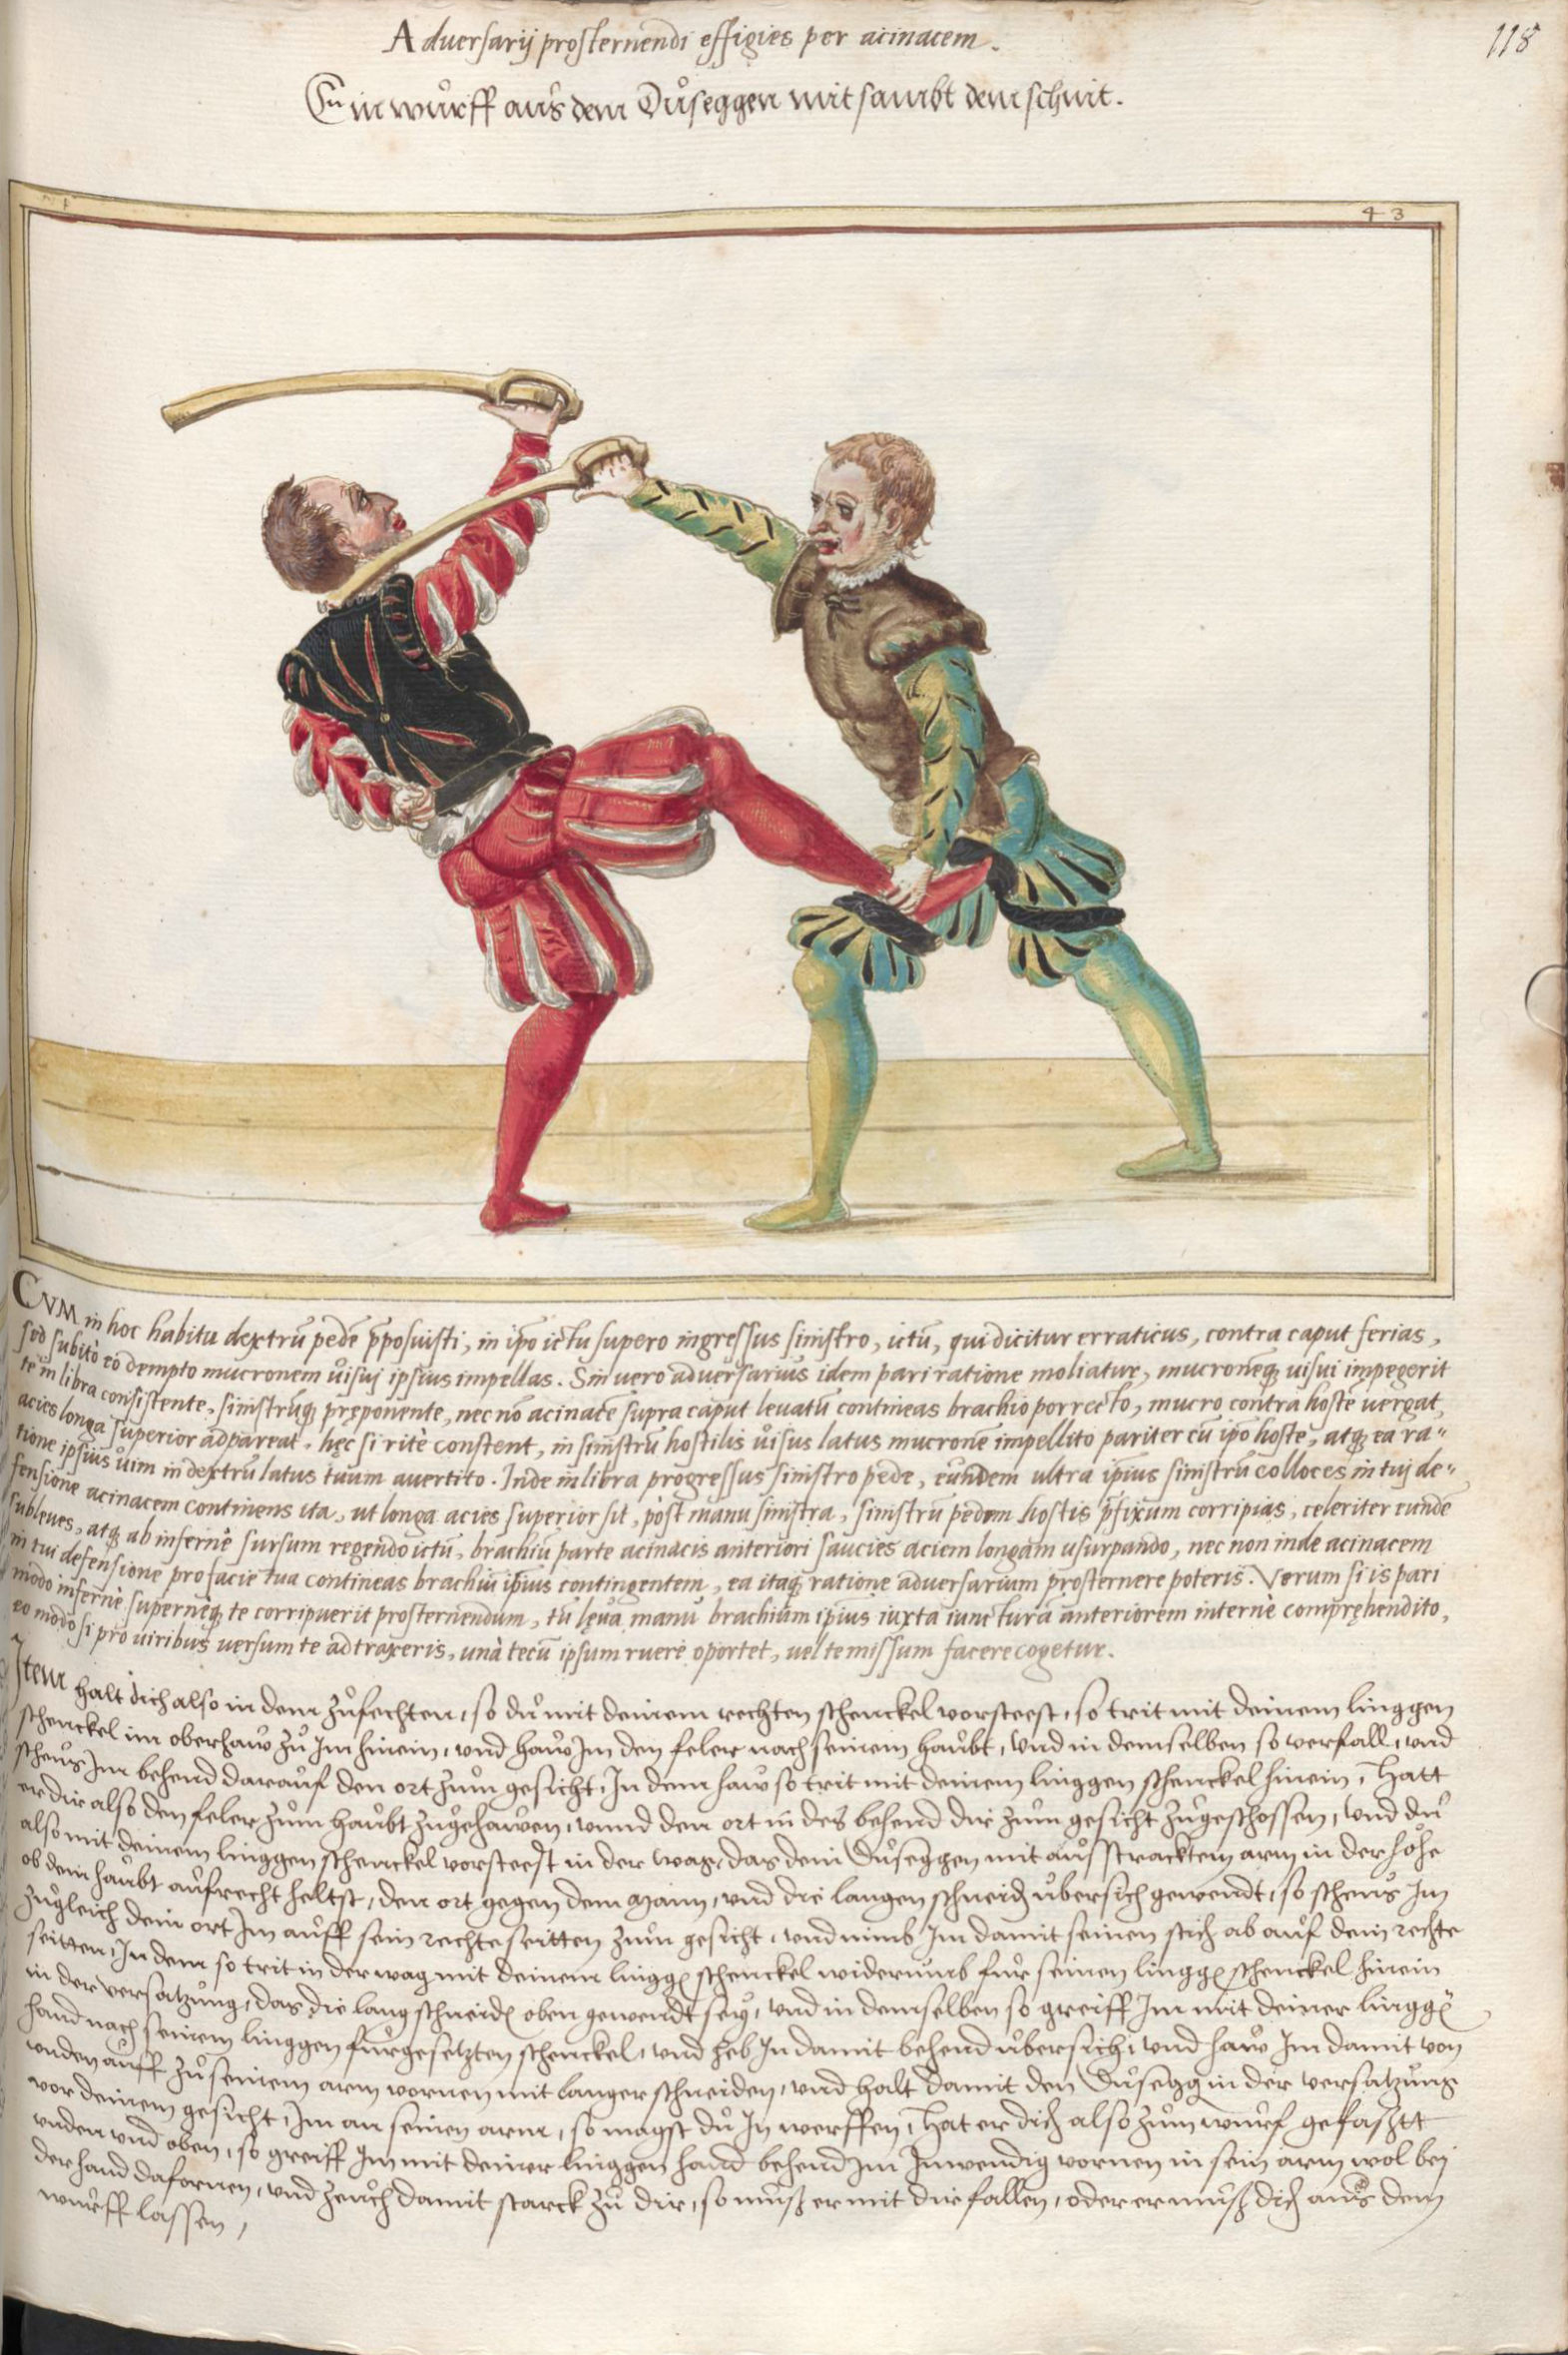 Adversarij prosternendi effigies per acinacem.
118
Ein wůrff aůs dem Důseggen mit sambt dem schnit.
43
CVM in hoc habitu dextrū pedē p̄posuisti, in ip̄o ictu supero ingressus sinistro, ictū, qui dicitur erraticus, contra caput ferias,
sed subitò eo dempto mucronem uisuj ipsius impellas. Sin uero adversarius idem pari ratione moliatur, mucronēq; uisui impegerit
te in libra consistente, sinistrūq; pręponente, nec nō acinacē supra caput leuatū contineas brachio porrecto, mucro contra hostē uergat,
acies longa superior adpareat, hęc si ritè constent, in sinistrū hostilis uisus latus mucronē impellito pariter cū ip̄o hoste, atq; ea ra=
tione ipsius uim in dextrū latus tuum auertito. Inde in libra progressus sinistro pede, eundem ultra ip̄ius sinistrū colloces in tuj de=
fensione acinacem continens ita, ut longa acies superior sit, pòst manu sinistra, sinistrū pedem hostis p̄fixum corripias, celeriter eundē
subleues, atq; ab infernè sursum regendo ictū, brachiū parte acinacis anteriori saucies aciem longam usurpando, nec non inde acinacem
in tui defensione pro facie tua contineas brachiū ip̄ius contingentem, ea itaq; ratione adversarium prosternere poteris. Verum si is pari
modo infernè supernèq; te corripuerit prosternendum, tū lęua manu brachium ipius iuxta iuncturā anteriorem internè compręhendito,
eo modo si pro uiribus versum te adtraxeris, unà tecū ipsum ruere oportet, uel te missum facere cogetur.
Item halt dich also in dem zůfechten, so dů mit deinem rechten schenckel vorsteest, so trit mit deinem linggen
schenckel im oberhaw zů Im hinein, vnd haw Im den feler nach seinem haůbt, vnd in demselben so verfall, vnd
scheůs Im behend daraůf den ort zům gesicht, In dem haw so trit mit deinem linggen schenckel hinein, Hatt
er dir also den feler zům haůbt zůgehawen, vnnd den ort in des behend dir zům gesicht zůgeschossen, vnd dů
also mit deinem linggen schenckel vorsteest in der wag, das dein Důseggen mit aůsstracktem arm in der höhe
ob dem haůbt aůfrecht heltst, den ort gegen dem Mann, vnd die langen schneid übersich gewendt, so scheůs Im
zůgleich dein ort Im aůff sein rechte seitten zům gesicht, vnd nimb Im damit seinen stich ab aůf dein rechte
seitten, In dem so trit in der wag mit deinem linggē schenckel widerumb für seinen linggē schenckel hinein
in der versatzůng, das die lang schneid oben gewendt sey, vnd in demselben so greiff Im mit deiner linggē
hand nach seinem linggen fürgesetzten schenckel, vnd heb In damit behend übersich, vnd haw Im damit von
vnden aůff zů seinem arm vornen mit langer schneiden, vnd halt damit den Důsegg in der versatzůng
vor deinem gesicht, Im an seinen arm, so magst dů In werffen, Hat er dich also zům wůrf gefasztt
vnden vnd oben, so greiff Im mit deiner linggen hand behend Im Inwendig vornen in sein arm wol bei
der hand dafornen, vnd zeůch damit starck zů dir, so můsz er mit dir fallen, oder er můsz dich aůs dem
wůrff lassen,